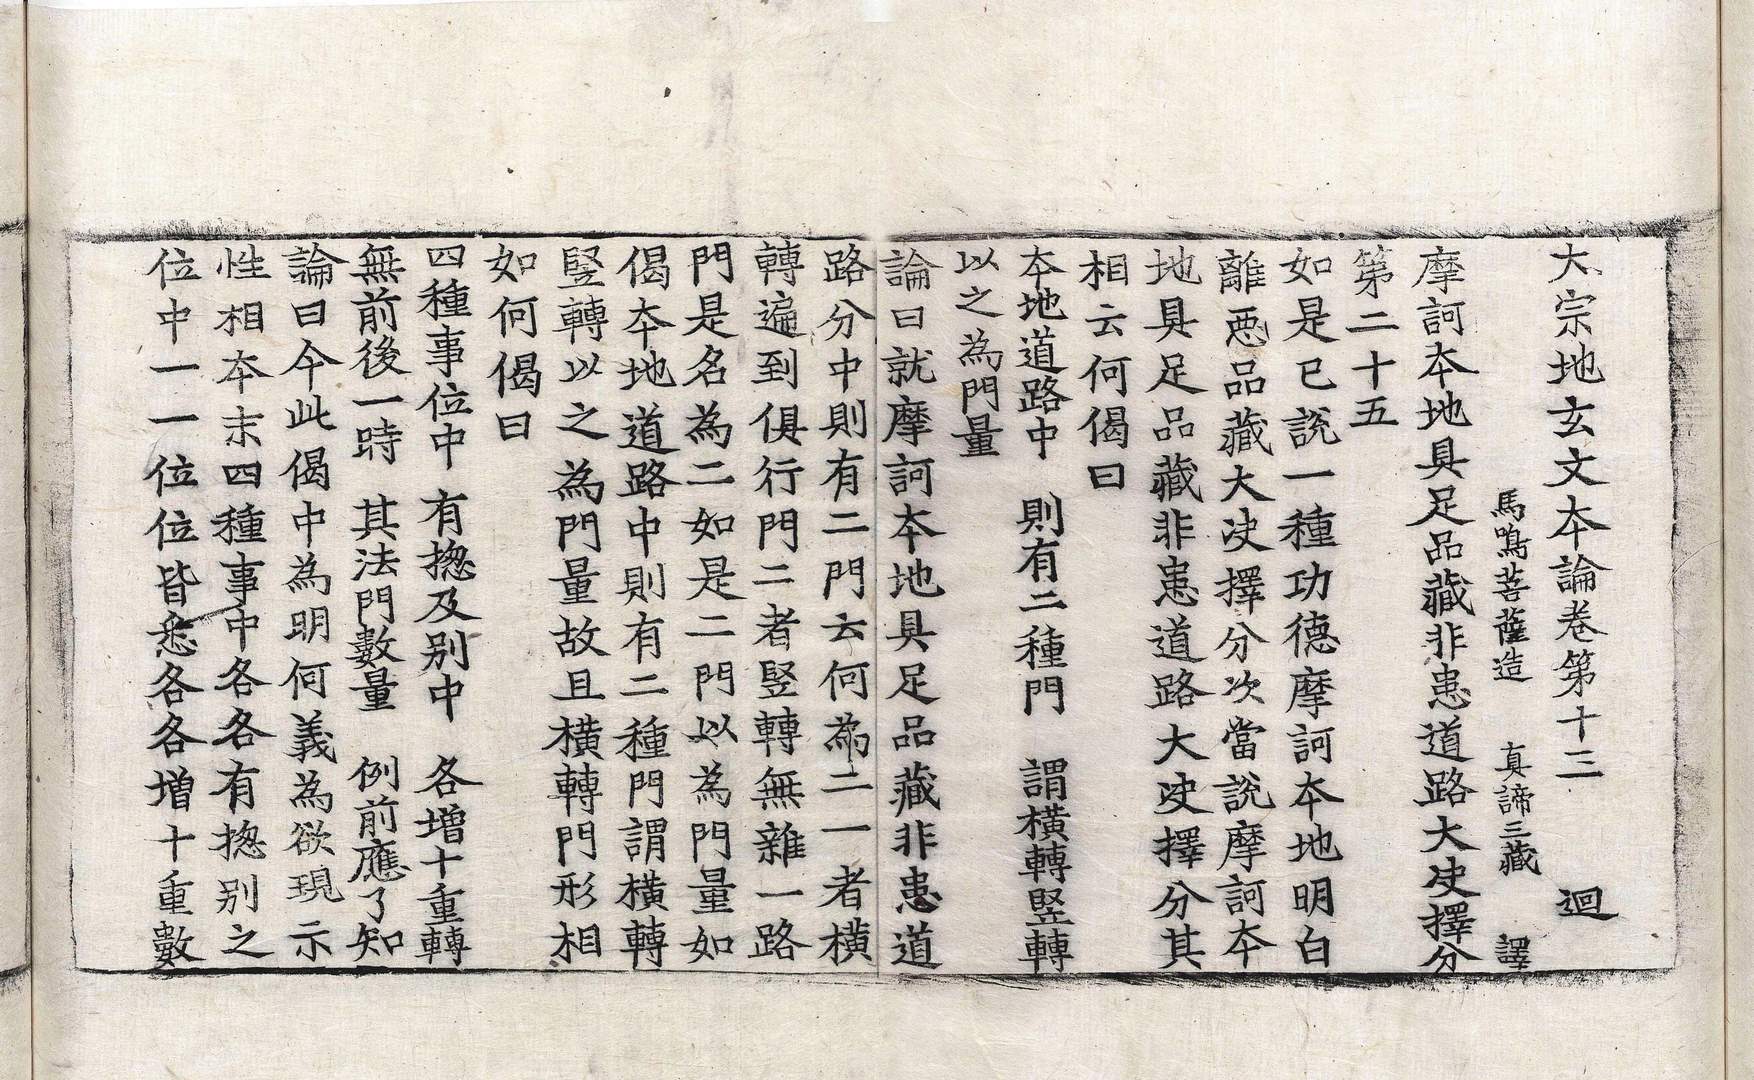 大宗地玄文本論卷第十三　迴
馬鳴菩薩造　真諦三藏　譯
摩訶本地具足品藏非患道路大决擇分
第二十五
如是已說一種功德摩訶本地明白
離惡品藏大决擇分次當說摩訶本
地具足品藏非患道路大决擇分其
相云何偈曰
本地道路中　則有二種門　謂橫轉竪轉
以之為門量
論曰就摩訶本地具足品藏非患道
路分中則有二門云何為二一者橫
轉遍到俱行門二者竪轉無雜一路
門是名為二如是二門以為門量如
偈本地道路中則有二種門謂橫轉
竪轉以之為門量故且橫轉門形相
如何偈曰
四種事位中　有揔及別中　各增十重轉
無前後一時　其法門數量　例前應了知
論曰今此偈中為明何義為欲現示
性相本末四種事中各各有揔別之
位中一一位位皆悉各各增十重數